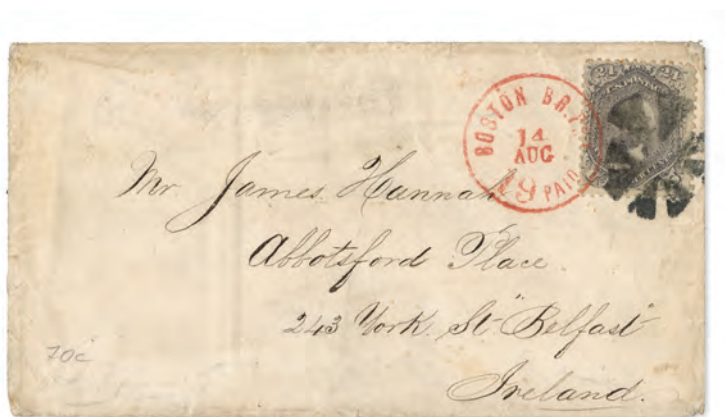 24 24
U.S. POSTAGE
BOSTON BR. P
14
AUG
19 PAID
Mr James Hannah
Abbotsford Place.
243 York. St "Belfast"
Ireland.
70c